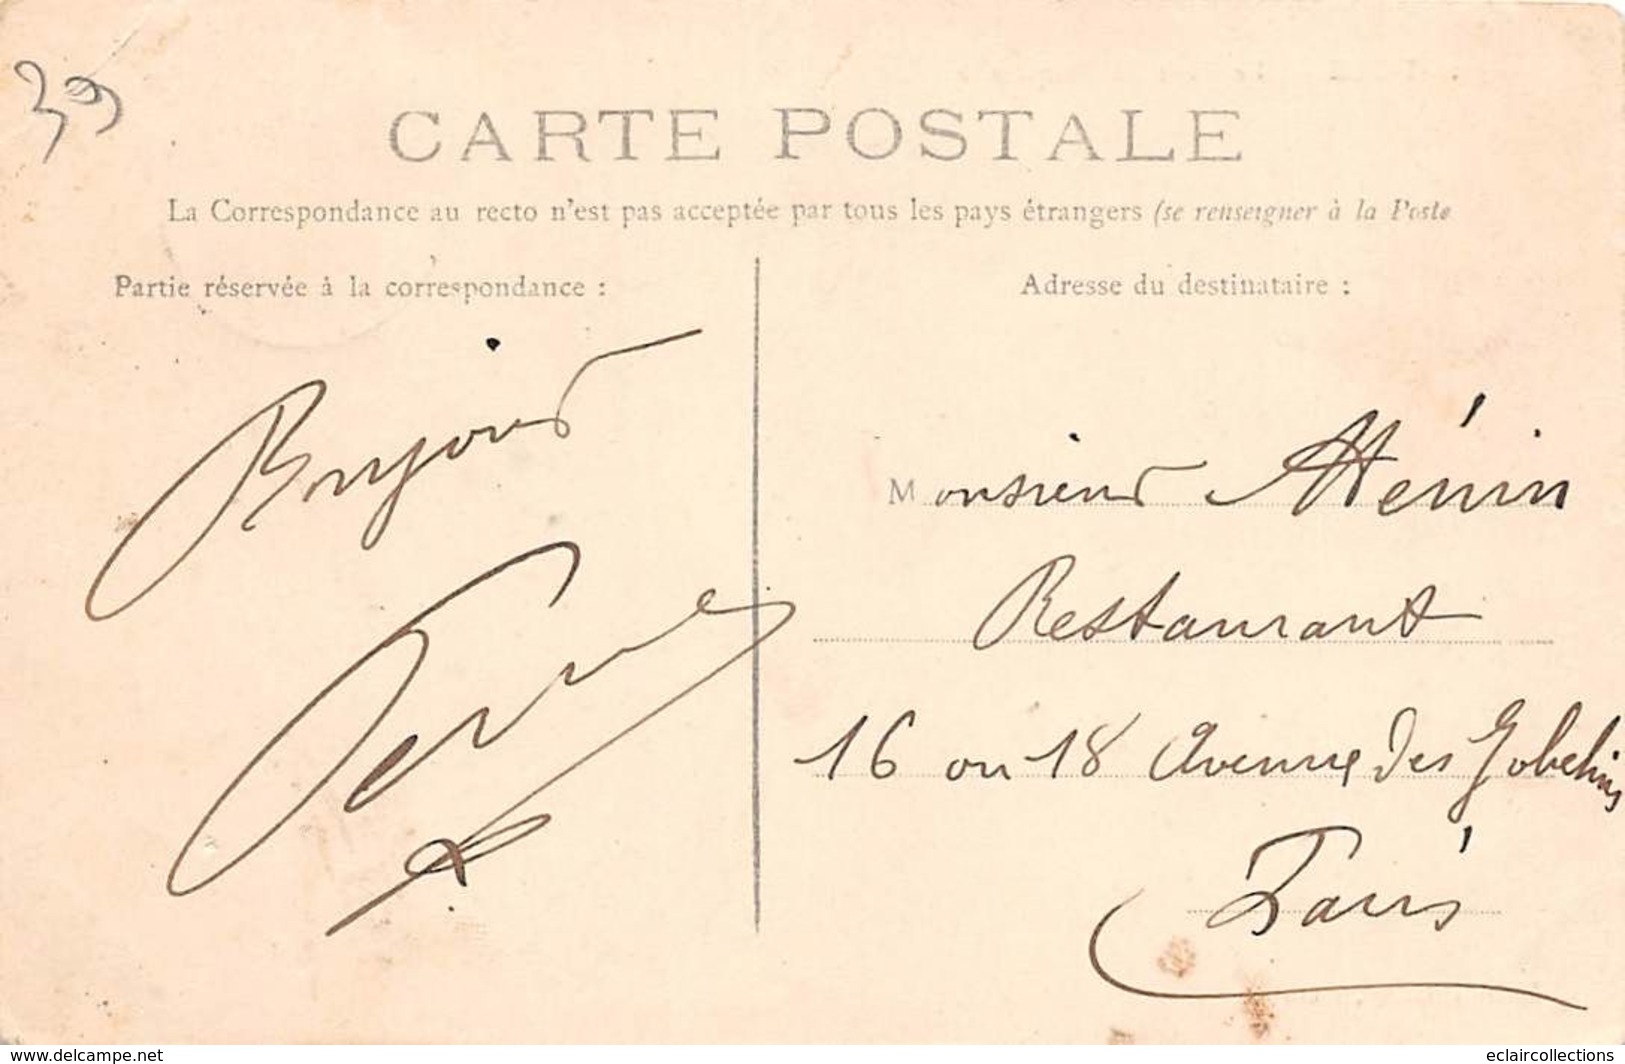 39
CARTE POSTALE
La Correspondance au recto n'est pas acceptée par tous les pays étrangers (se renseigner à la Poste
Partie réservée à la correspondance :
Bonjour
Adresse du destinataire :
Monsieur Hénin
Restaurant
16 ou 18 Avenue des Gobelins
Paris
www.delcampe.net
eclaircollections